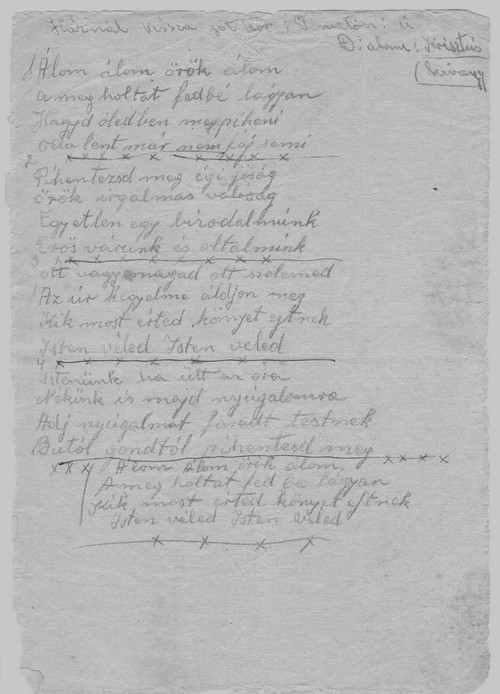 Háznál Vissza jöt kor i Temetön: ü
D: alom: Krisztus
1 Álom álom örök álom
a meg holtat fedbé lágyan
Hagyd öledben megpiheni
oda lent már nem fáj semi
2
Pihentezsd meg égi jóság
örök irgalmas valóság
Egyetlen egy birodalmunk
Erös várunk és oltalmunk
3
ott vagy magad ott szelemed
Az úr kegyelme áldjon meg
Kik most érted könyet ejtnek
Isten véled Isten veled
4
Istenünk ha ütt az óra
Nekünk is majd nyugalomra
Adj nyugalmat fáradt testnek
Butól gondtól pihentesd meg
Álom Álom örök álom,
A meg holtat fed be lágyan
Kik most érted könyet ejtnek
Isten véled Isten Veled